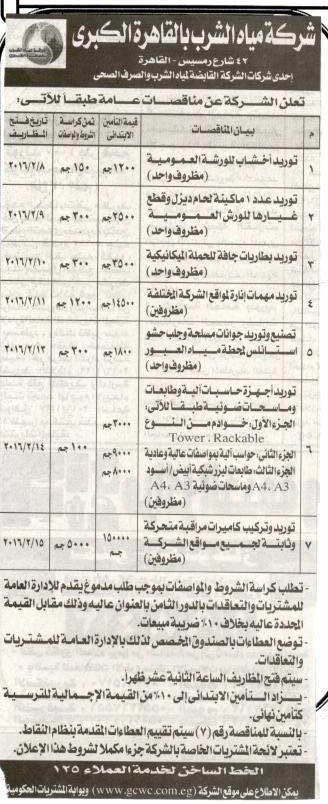 شركة مياه الشرب بالقاهرة الكبرى
٤٢ شارع رمسيس - القاهرة
إحدى شركات الشركة القابضة لمياه الشرب والصرف الصحى
تعلن الشركة عن مناقصات عامة طبقاً للآتى:
م
بيان المناقصات
قيمة التأمين الابتدائى
ثمن كراسة الشروط والمواصفات
تاريخ فتح المظاريف
١
توريد أخشاب للورشة العمومية
(مظروف واحد)
١٢٠٠ جم
١٥٠ جم
٢٠١٦/٢/٨
٢
توريد عدد ١ ماكينة لحام ديزل وقطع
غيارها للورش العمومية
(مظروف واحد)
٢٥٠٠ جم
٣٠٠ جم
٢٠١٦/٢/٩
٣
توريد بطاريات جافة للحملة الميكانيكية
(مظروف واحد)
٣٥٠٠ جم
٣٠٠ جم
٢٠١٦/٢/١٠
٤
توريد مهمات إنارة لمواقع الشركة المختلفة
(مظروفين)
١٤٥٠٠ جم
١٢٠٠ جم
٢٠١٦/٢/١١
٥
تصنيع وتوريد جوانات مسلحة وجلب حشو
استانلس لمحطة مياه العبور
(مظروف واحد)
١٨٠٠ جم
٣٠٠ جم
٢٠١٦/٢/١٣
٦
توريد أجهزة حاسبات آلية وطابعات
وماسحات ضوئية طبقاً للآتى:
الجزء الأول: خوادم من النوع
Tower ، Rackable
الجزء الثانى: حواسب آلية بمواصفات عالية وعادية
الجزء الثالث: طابعات ليزر شبكية أبيض/ أسود
A4، A3 وماسحات ضوئية A4، A3
(مظروفين)
٣٠٠٠ جم
٩٠٠٠ جم
٨٠٠٠ جم
١٠٠ جم
٢٠١٦/٢/١٤
٧
توريد وتركيب كاميرات مراقبة متحركة
وثابتة لجميع مواقع الشركة
(مظروفين)
١٥٠٠٠٠ جم
٥٠٠٠ جم
٢٠١٦/٢/١٥
- تطلب كراسة الشروط والمواصفات بموجب طلب مدموغ يقدم للإدارة العامة
للمشتريات والتعاقدات بالدور الثامن بالعنوان عاليه وذلك مقابل القيمة
المحددة عاليه بخلاف ١٠٪ ضريبة مبيعات.
- توضع العطاءات بالصندوق المخصص لذلك بالإدارة العامة للمشتريات
والتعاقدات.
- سيتم فتح المظاريف الساعة الثانية عشر ظهراً.
- يزاد التأمين الابتدائى إلى ١٠٪ من القيمة الإجمالية للترسية
كتأمين نهائى.
- بالنسبة للمناقصة رقم (٧) سيتم تقييم العطاءات المقدمة بنظام النقاط.
- تعتبر لائحة المشتريات الخاصة بالشركة جزء مكملاً لشروط هذا الإعلان.
الخط الساخن لخدمة العملاء ١٢٥
يمكن الاطلاع على موقع الشركة (www.gcwc.com.eg) وبوابة المشتريات الحكومية